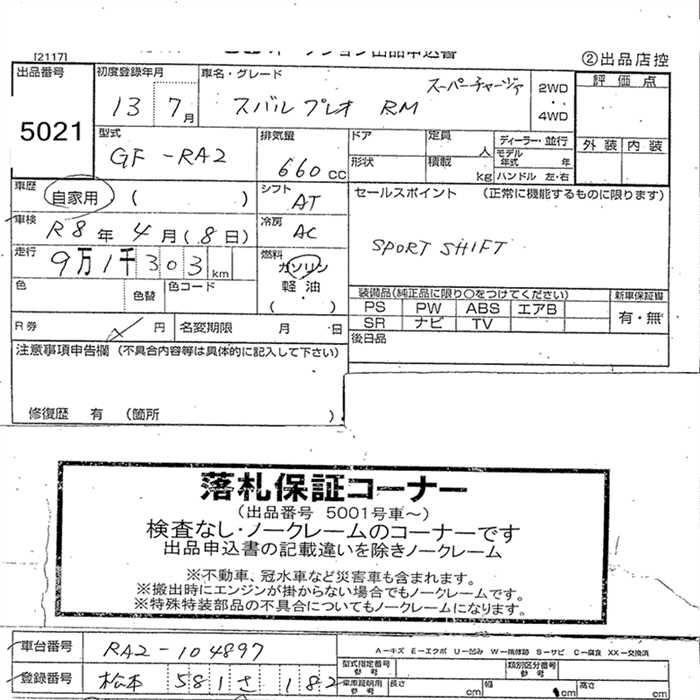 [2117] オークション出品申込書 ②出品店控
出品番号 初度登録年月 車名・グレード スーパーチャージァ 2WD ・ ・ 4WD 評価点
5021 13 7月 スバル プレオ RM
型式 排気量 ドア 定員 人 ディーラー・並行 外装 内装
GF-RA2 660cc 形状 積載 kg モデル年式 年 ハンドル 左・右
車歴 自家用 ( ) シフト AT セールスポイント (正常に機能するものに限ります)
車検 R8年 4月(8日) 冷房 AC SPORT SHIFT
走行 9万1千303km 燃料 ガソリン 軽油 ( )
色 色替 色コード
装備品(純正品に限り○をつけてください) 新車保証書
PS PW ABS エアB 有・無
SR ナビ TV
R券 円 名変期限 月 日 後日品
注意事項申告欄 (不具合内容等は具体的に記入して下さい)
修復歴 有 (箇所 )
落札保証コーナー
(出品番号 5001号車~)
検査なし・ノークレームのコーナーです
出品申込書の記載違いを除きノークレーム
※不動車、冠水車など災害車も含まれます。
※搬出時にエンジンが掛からない場合でもノークレームです。
※特殊特装部品の不具合についてもノークレームになります。
車台番号 RA2-104897 A-キズ E-エクボ U-凹み W-補修跡 S-サビ C-腐食 XX-交換済
型式指定番号 参考 類別区分番号 参考
登録番号 松本 581 さ 182 車庫証明用 参考 長さ cm 幅 cm 高さ cm